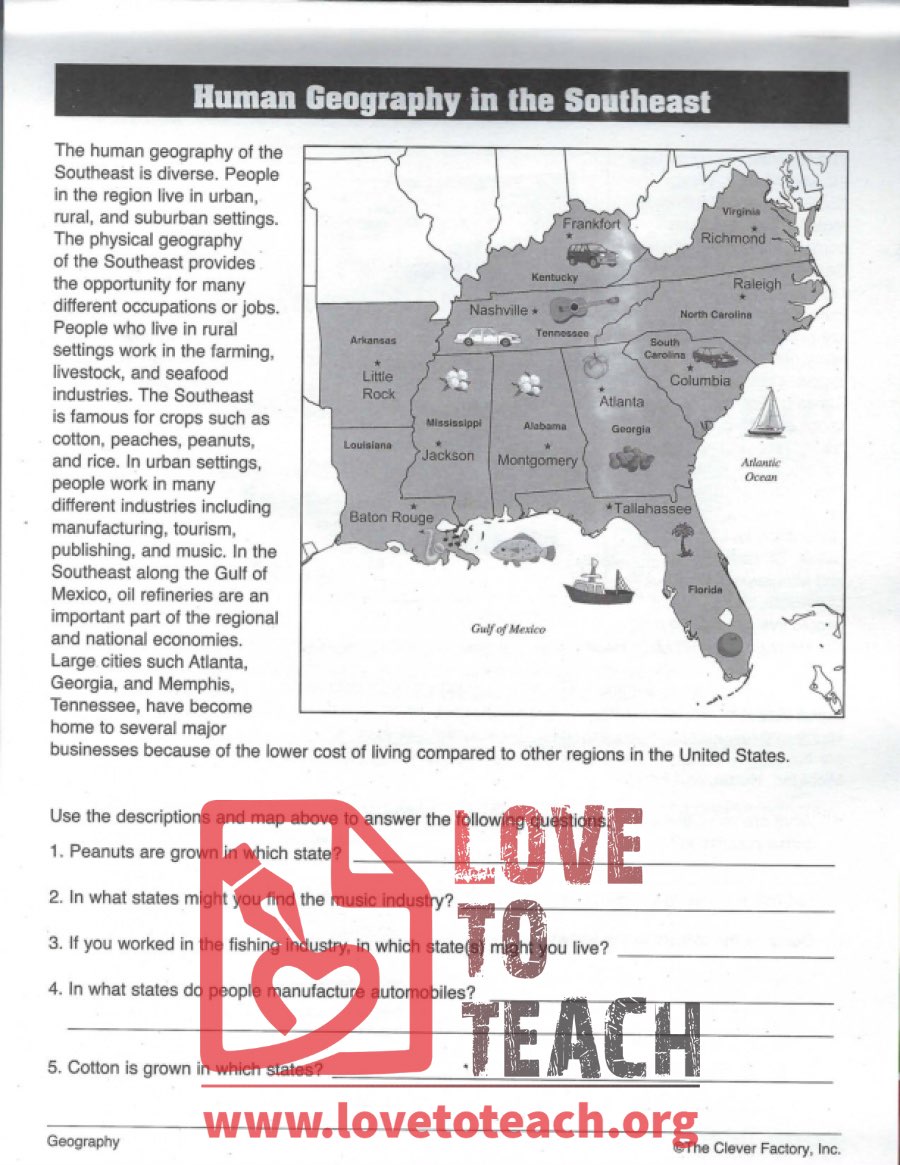 Human Geography in the Southeast
The human geography of the
Southeast is diverse. People
in the region live in urban,
rural, and suburban settings.
The physical geography
of the Southeast provides
the opportunity for many
different occupations or jobs.
People who live in rural
settings work in the farming,
livestock, and seafood
industries. The Southeast
is famous for crops such as
cotton, peaches, peanuts,
and rice. In urban settings,
people work in many
different industries including
manufacturing, tourism,
publishing, and music. In the
Southeast along the Gulf of
Mexico, oil refineries are an
important part of the regional
and national economies.
Large cities such Atlanta,
Georgia, and Memphis,
Tennessee, have become
home to several major
businesses because of the lower cost of living compared to other regions in the United States.
Frankfort
Virginia
Richmond
Kentucky
Raleigh
Nashville
Tennessee
North Carolina
Arkansas
South
Carolina
Little
Rock
Columbia
Atlanta
Mississippi
Alabama
Georgia
Louisiana
Jackson
Montgomery
Atlantic
Ocean
Baton Rouge
Tallahassee
Florida
Gulf of Mexico
Use the descriptions and map above to answer the following questions.
1. Peanuts are grown in which state?
2. In what states might you find the music industry?
3. If you worked in the fishing industry, in which state(s) might you live?
4. In what states do people manufacture automobiles?
5. Cotton is grown in which states?
LOVE
TO
TEACH
www.lovetoteach.org
Geography
©The Clever Factory, Inc.